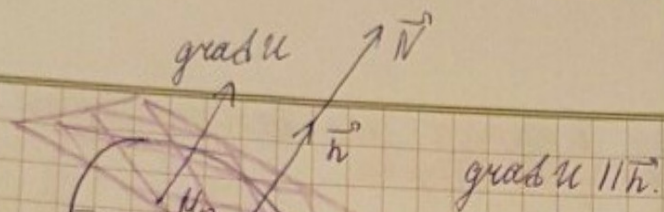 grad u
N⃗
n⃗
grad u || n⃗.
M₀